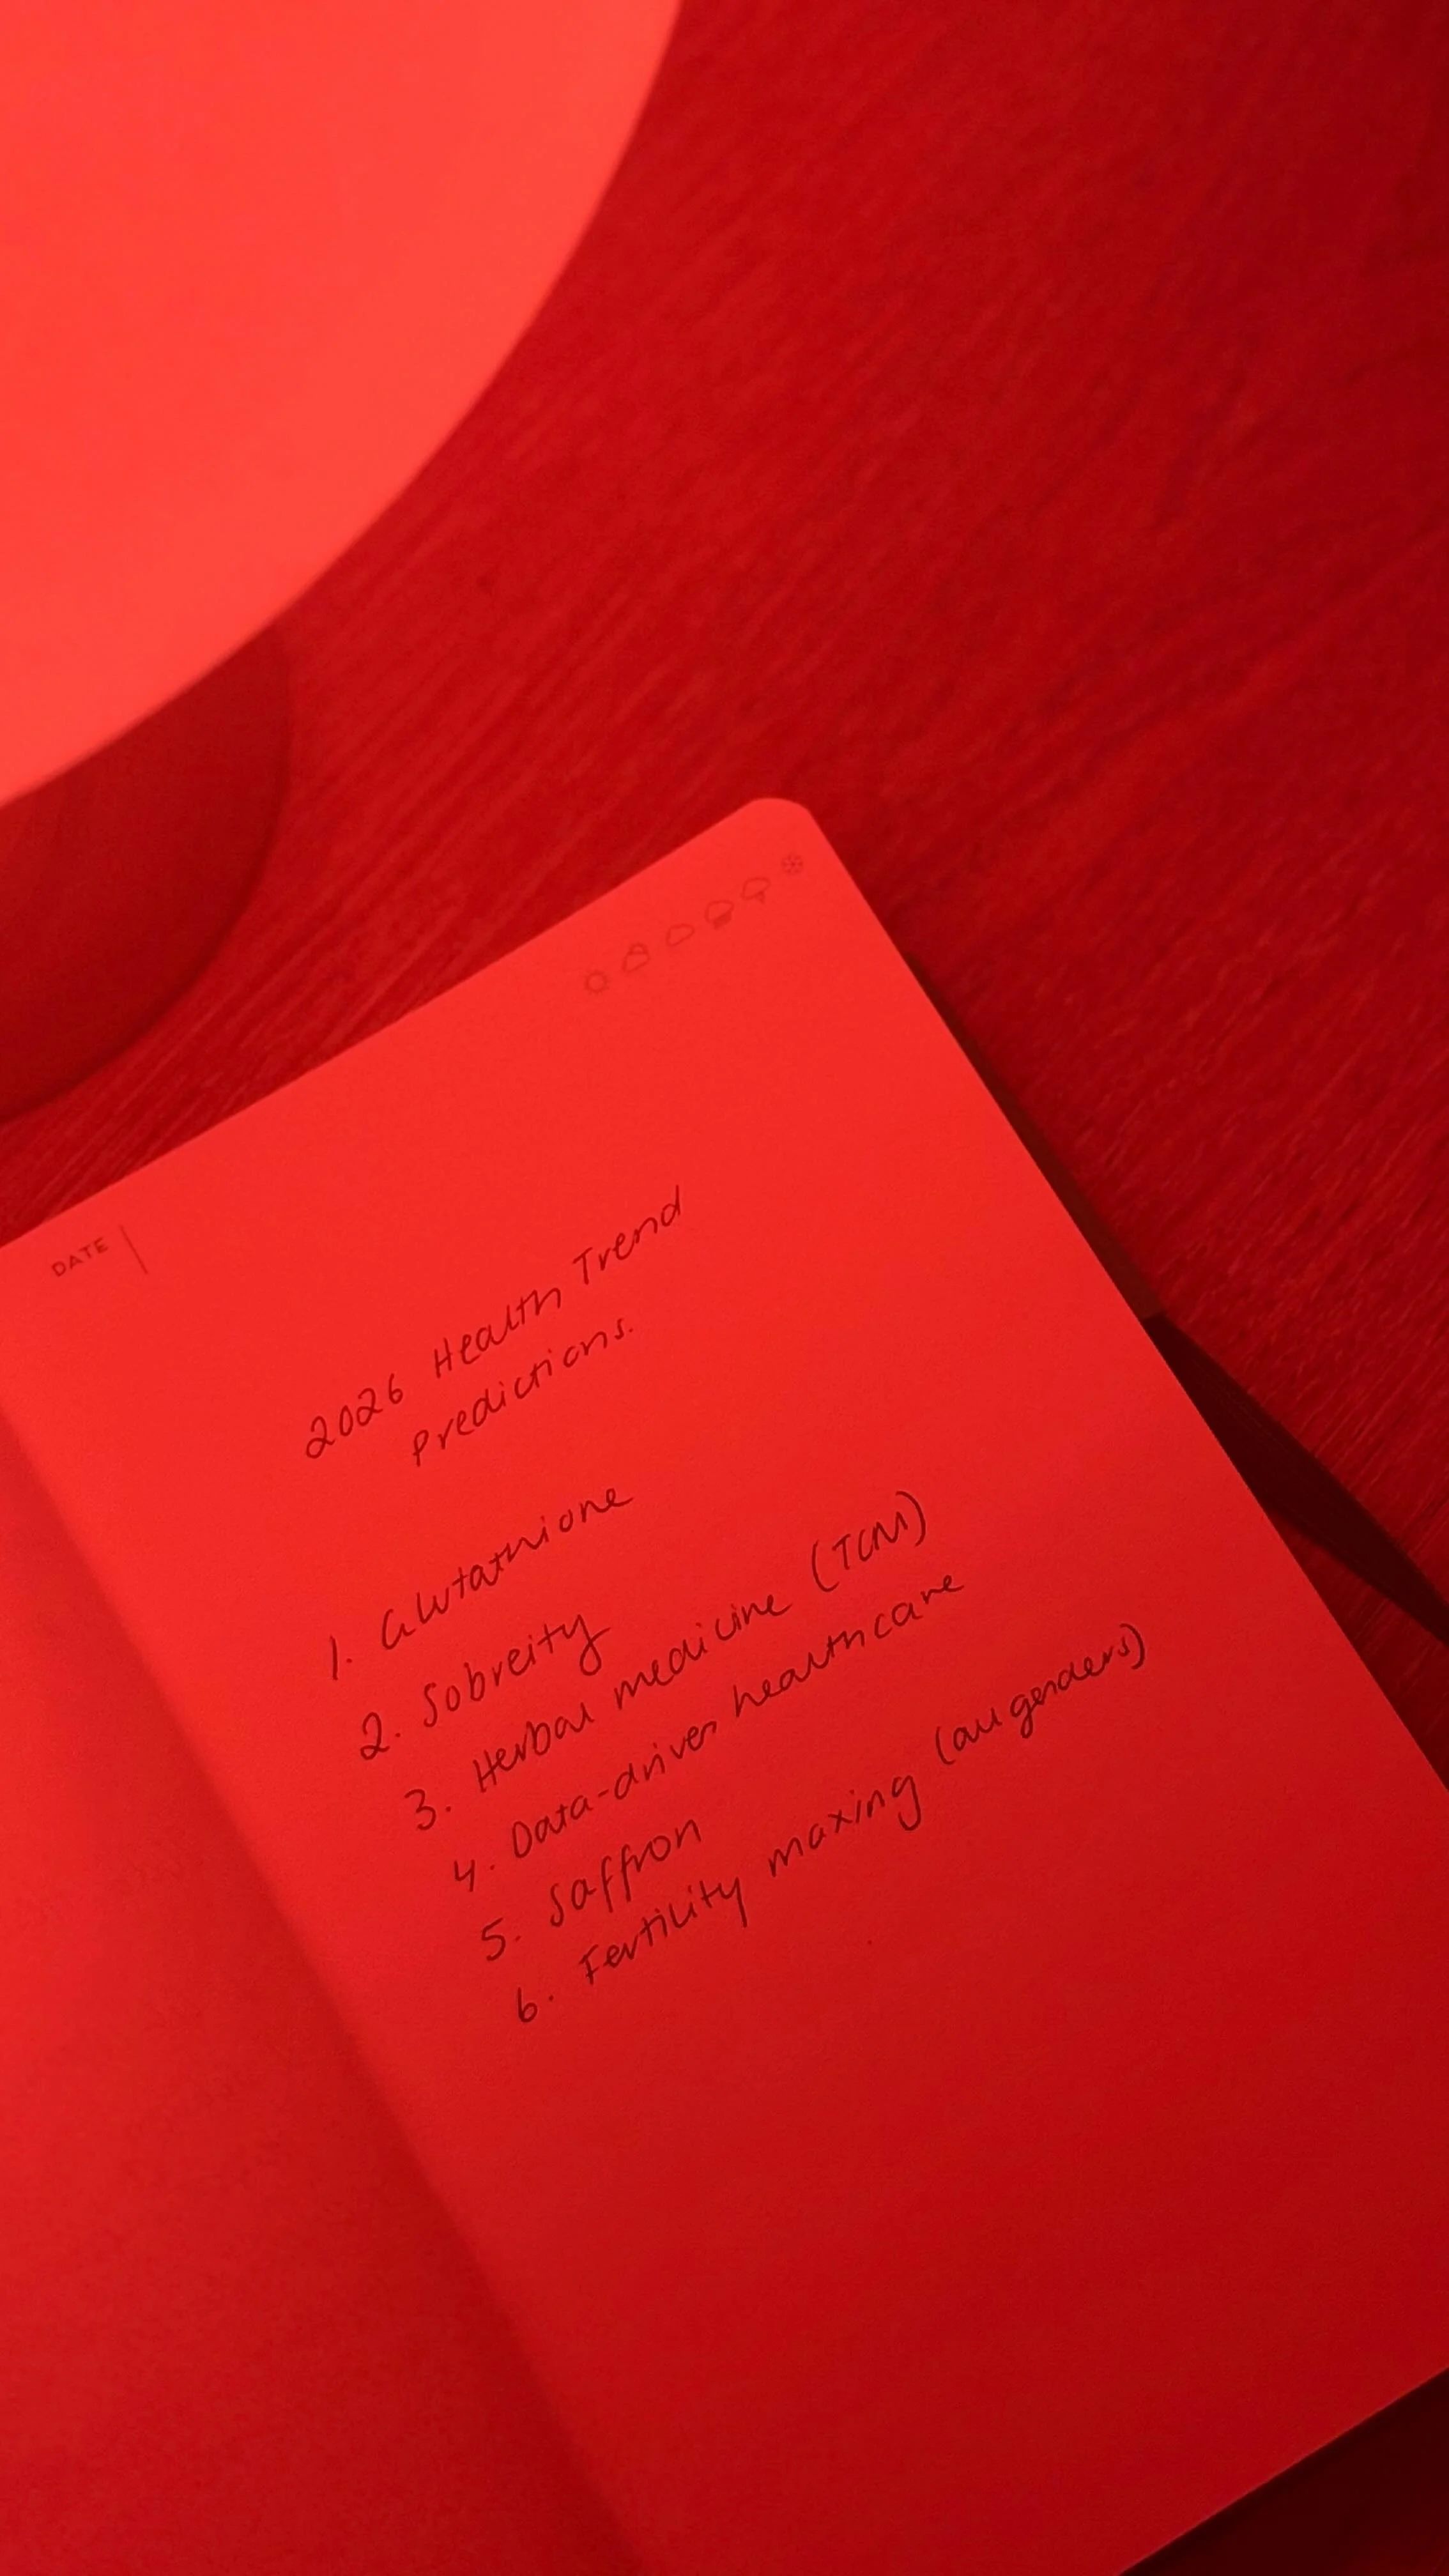 DATE
2026 Health Trend
Predictions.
1. Glutathione
2. Sobreity
3. Herbal medicine (TCM)
4. Data-driven healthcare
5. Saffron
6. Fertility maxing (all genders)